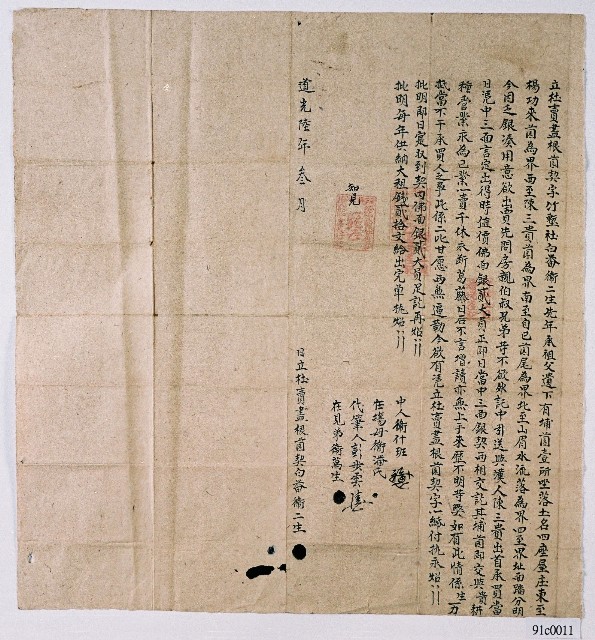 立杜賣盡根菌契字竹塹社白番衛二生先年承祖父遺下有埔菌壹所坐落土名四座屋庄東至
楊功來菌為界西至陳三貴菌為界南至自己菌尾為界北至山眉水流落為界四至界址面踏分明
今因乏銀湊用意欲出賣先問房親伯叔兄弟等不欲外託中引送與漢人陳三貴出首承買當
日憑中三面言定出得時值價佛面銀貳大員正即日當中三面銀契兩相交訖其埔菌即交與貴耕
種管業永為己業一賣千休永斷葛藤日后不言增讀亦無上手來歷不明等弊如有此情係生一力
抵當不干承買人之事此係二比甘愿兩無逼勒今欲有憑立杜賣盡根菌契字一紙付執永炤
批明即日實收到契內佛面銀貳大員足訖再炤
批明每年供納大租錢貳拾文給出完單執炤
中人衛什班
知見
在場母衛潘氏
代筆人彭步雲
在見弟衛萬生
道光陸年叁月
日立杜賣盡根菌契白番衛二生
91c0011